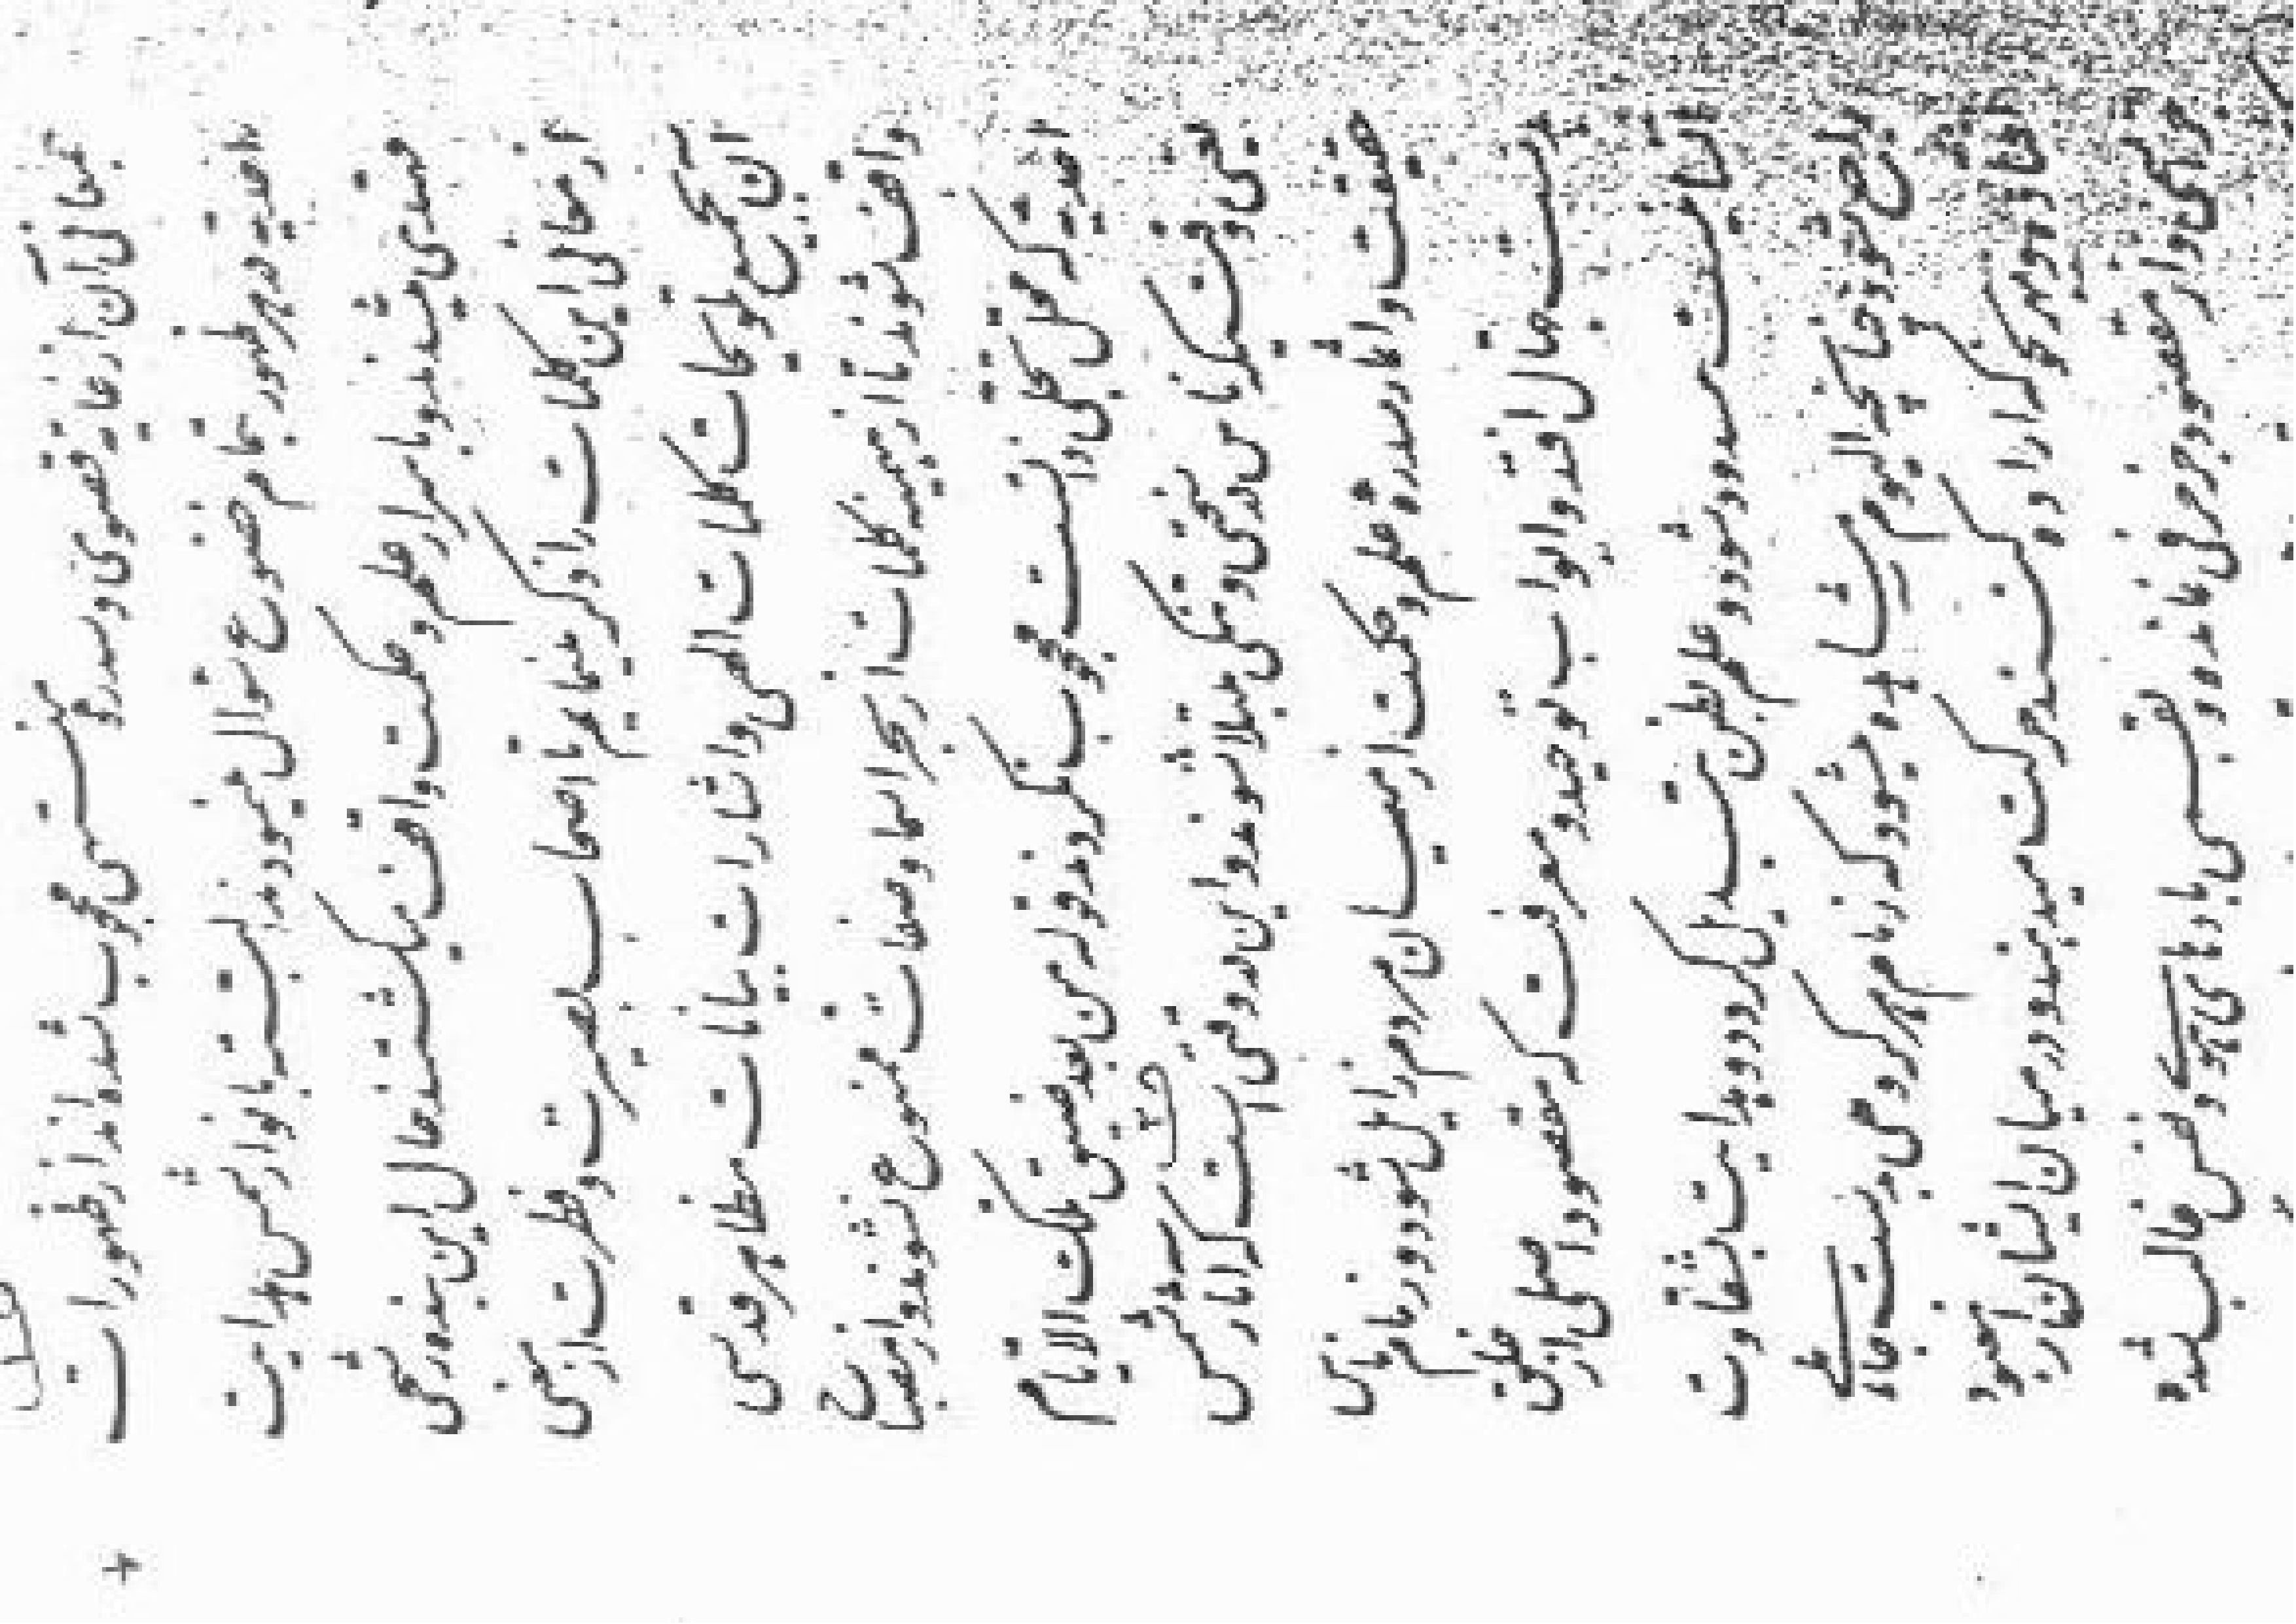 بمعانی آن از غایه قصوی و سدرهٔ منتهی محجوب شده‌اند از ظهورات
احدیه در هر ظهور بتمام خضوع سؤال مینمودند البته بانوار شمس هدایت
مهتدی میشدند و باسرار علم و حکمت واقف میگشتند حال این بنده رشحی
از معانی این کلمات را ذکر مینمایم تا اصحاب بصیرت و فطرت از معنی
آن بجمیع تلویحات کلمات الهی و اشارات بیانات مظاهر قدسی
واقف شوند تا از هیمنه کلمات از بحر اسما و صفات ممنوع نشوند و از مصباح
احدیه که محل تجلی ذاتست محجوب نگردند قوله من بعد ضیق تلک الایام
یعنی وقتی که ناس در سختی و تنگی مبتلا شوند و این در وقتی است که آثار شمس
حقیقت و اثمار سدره علم و حکمت از میان مردم زائل شود و زمام ناس
بدست جهال افتد و ابواب توحید و معرفت که مقصود اصلی از خلق
انسانیست مسدود شود و علم بظن تبدیل گردد و هدایت بشقاوت
راجع شود چنانچه الیوم مشاهده میشود که زمام هر گروهی بدست جاهلی
افتاده و بهر نحو که اراده کنند حرکت میدهند و در میان ایشان از معبود
جز اسمی و از مقصود جز حرفی نمانده و بقسمی بادهای هوی و نفس غالب شده